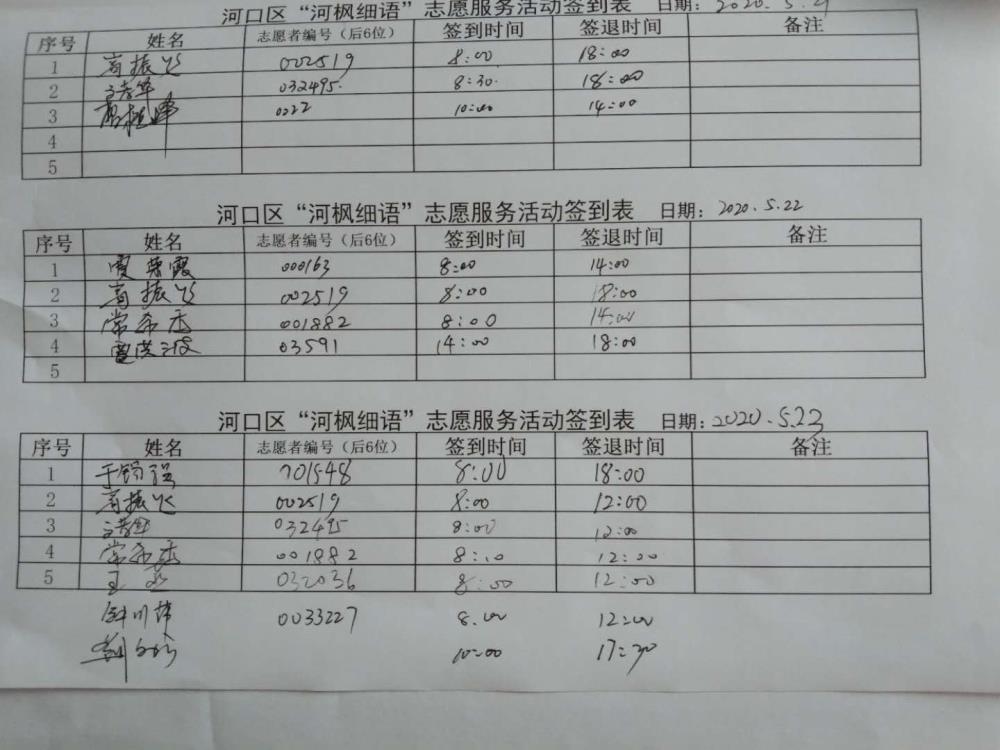 河口区“河枫细语”志愿服务活动签到表 日期：2020.5.21
序号 姓名 志愿者编号（后6位） 签到时间 签退时间 备注
1 高振飞 002519 8:00 18:00
2 032495. 8:30. 18:00
3 0222 10:00 14:00
4
5
河口区“河枫细语”志愿服务活动签到表 日期：2020.5.22
序号 姓名 志愿者编号（后6位） 签到时间 签退时间 备注
1 贾荣霞 000163 8:00 14:00
2 高振飞 002519 8:00 18:00
3 常希 001882 8:00 14:00
4 03591 14:00 18:00
5
河口区“河枫细语”志愿服务活动签到表 日期：2020.5.23
序号 姓名 志愿者编号（后6位） 签到时间 签退时间 备注
1 701548 8:00 18:00
2 高振飞 002519 8:00 12:00
3 032495 8:00 12:00
4 常希 001882 8:00 12:00
5 王 032036 8:00 12:00
0033227 8.00 12:00
10:00 17:30